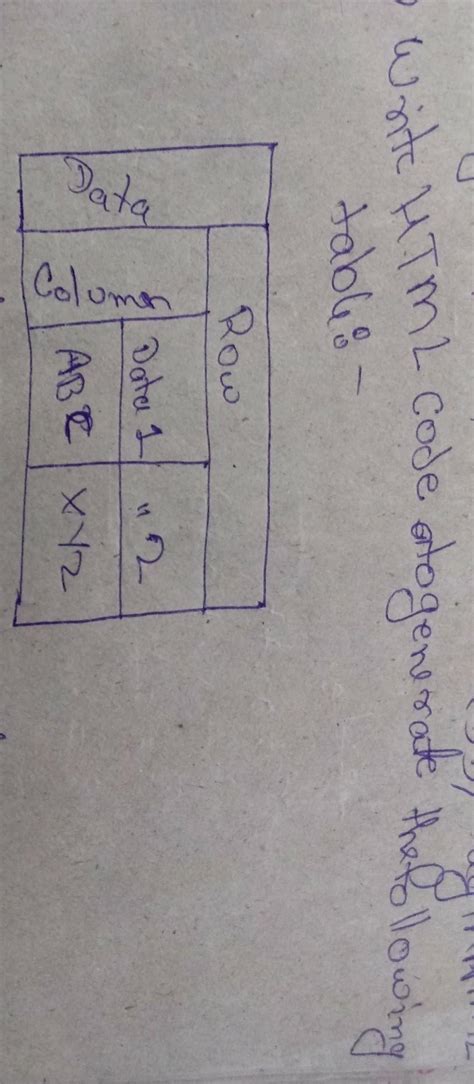 Write HTML Code to generate the following
table:-
Data
Row
Column
Data 1
" 2
ABC
XYZ